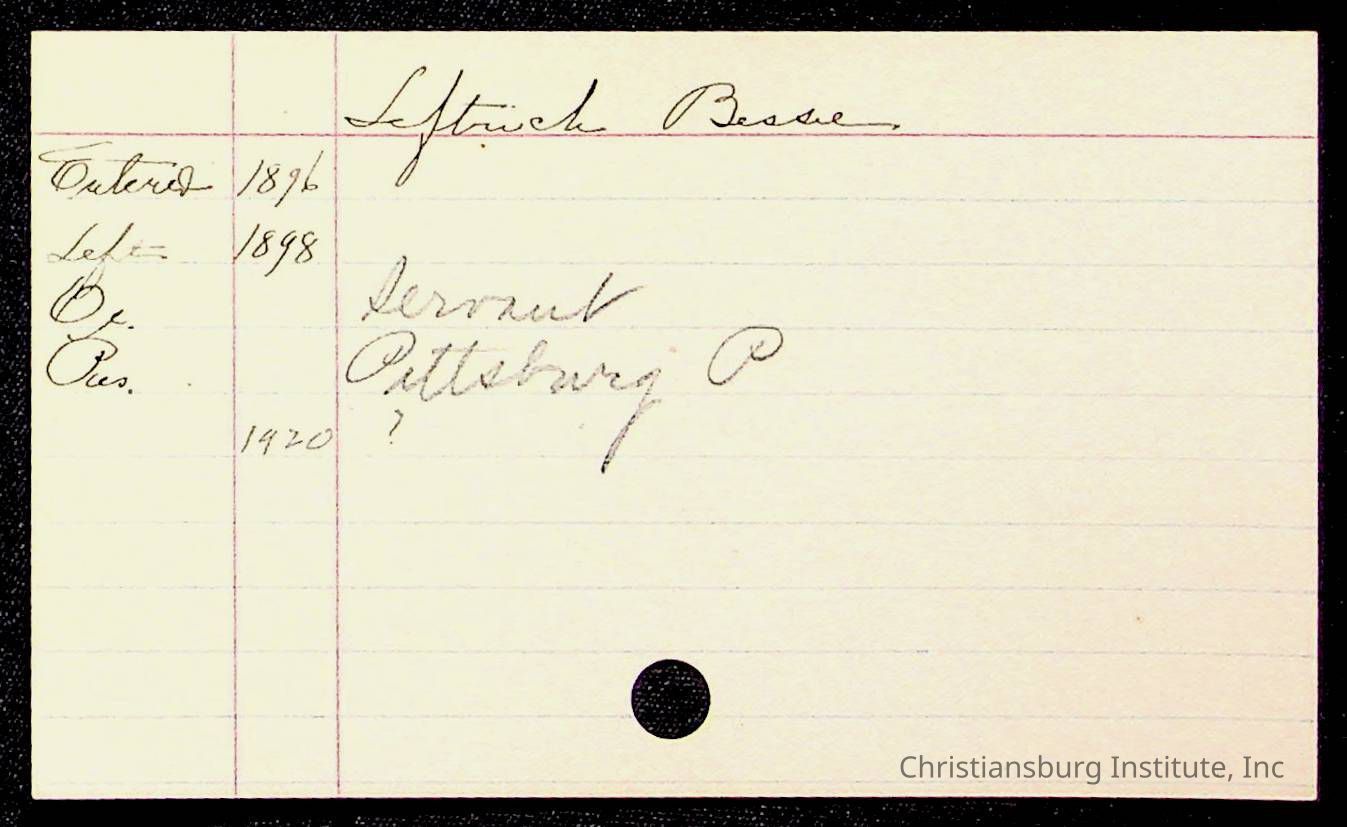 Leftrich Bessie
Entered 1896
Left 1898
Oc. Servant
Res. Pittsburg P
1920 ?
Christiansburg Institute, Inc